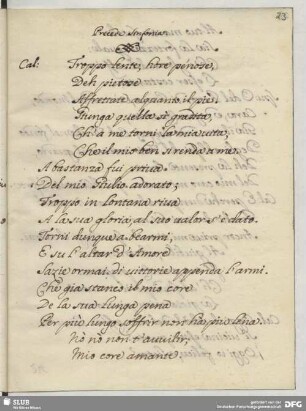 23
Precede Sinfonia.
Cal: Troppo lente, hore penose,
Deh pietose
Affrettate alquanto il piè:
Giunga quella sì gradita,
Ch'à me torni la mia vita;
Che il mio ben si renda a me.
A bastanza fui priva
Del mio Giulio adorato;
Troppo in lontana riva
A la sua gloria, al suo valor s'è dato.
Torni dunque a bearmi,
E su l'altar d'Amore
Sazie ormai di vittorie appenda l'armi.
Che già stanco il mio core
De la sua lunga pena
Per più lungo soffrir non hà più lena.
Nò nò non t'auuilir,
Mio core amante.
SLUB
Wir führen Wissen.
gefördert von der
Deutschen Forschungsgemeinschaft
DFG